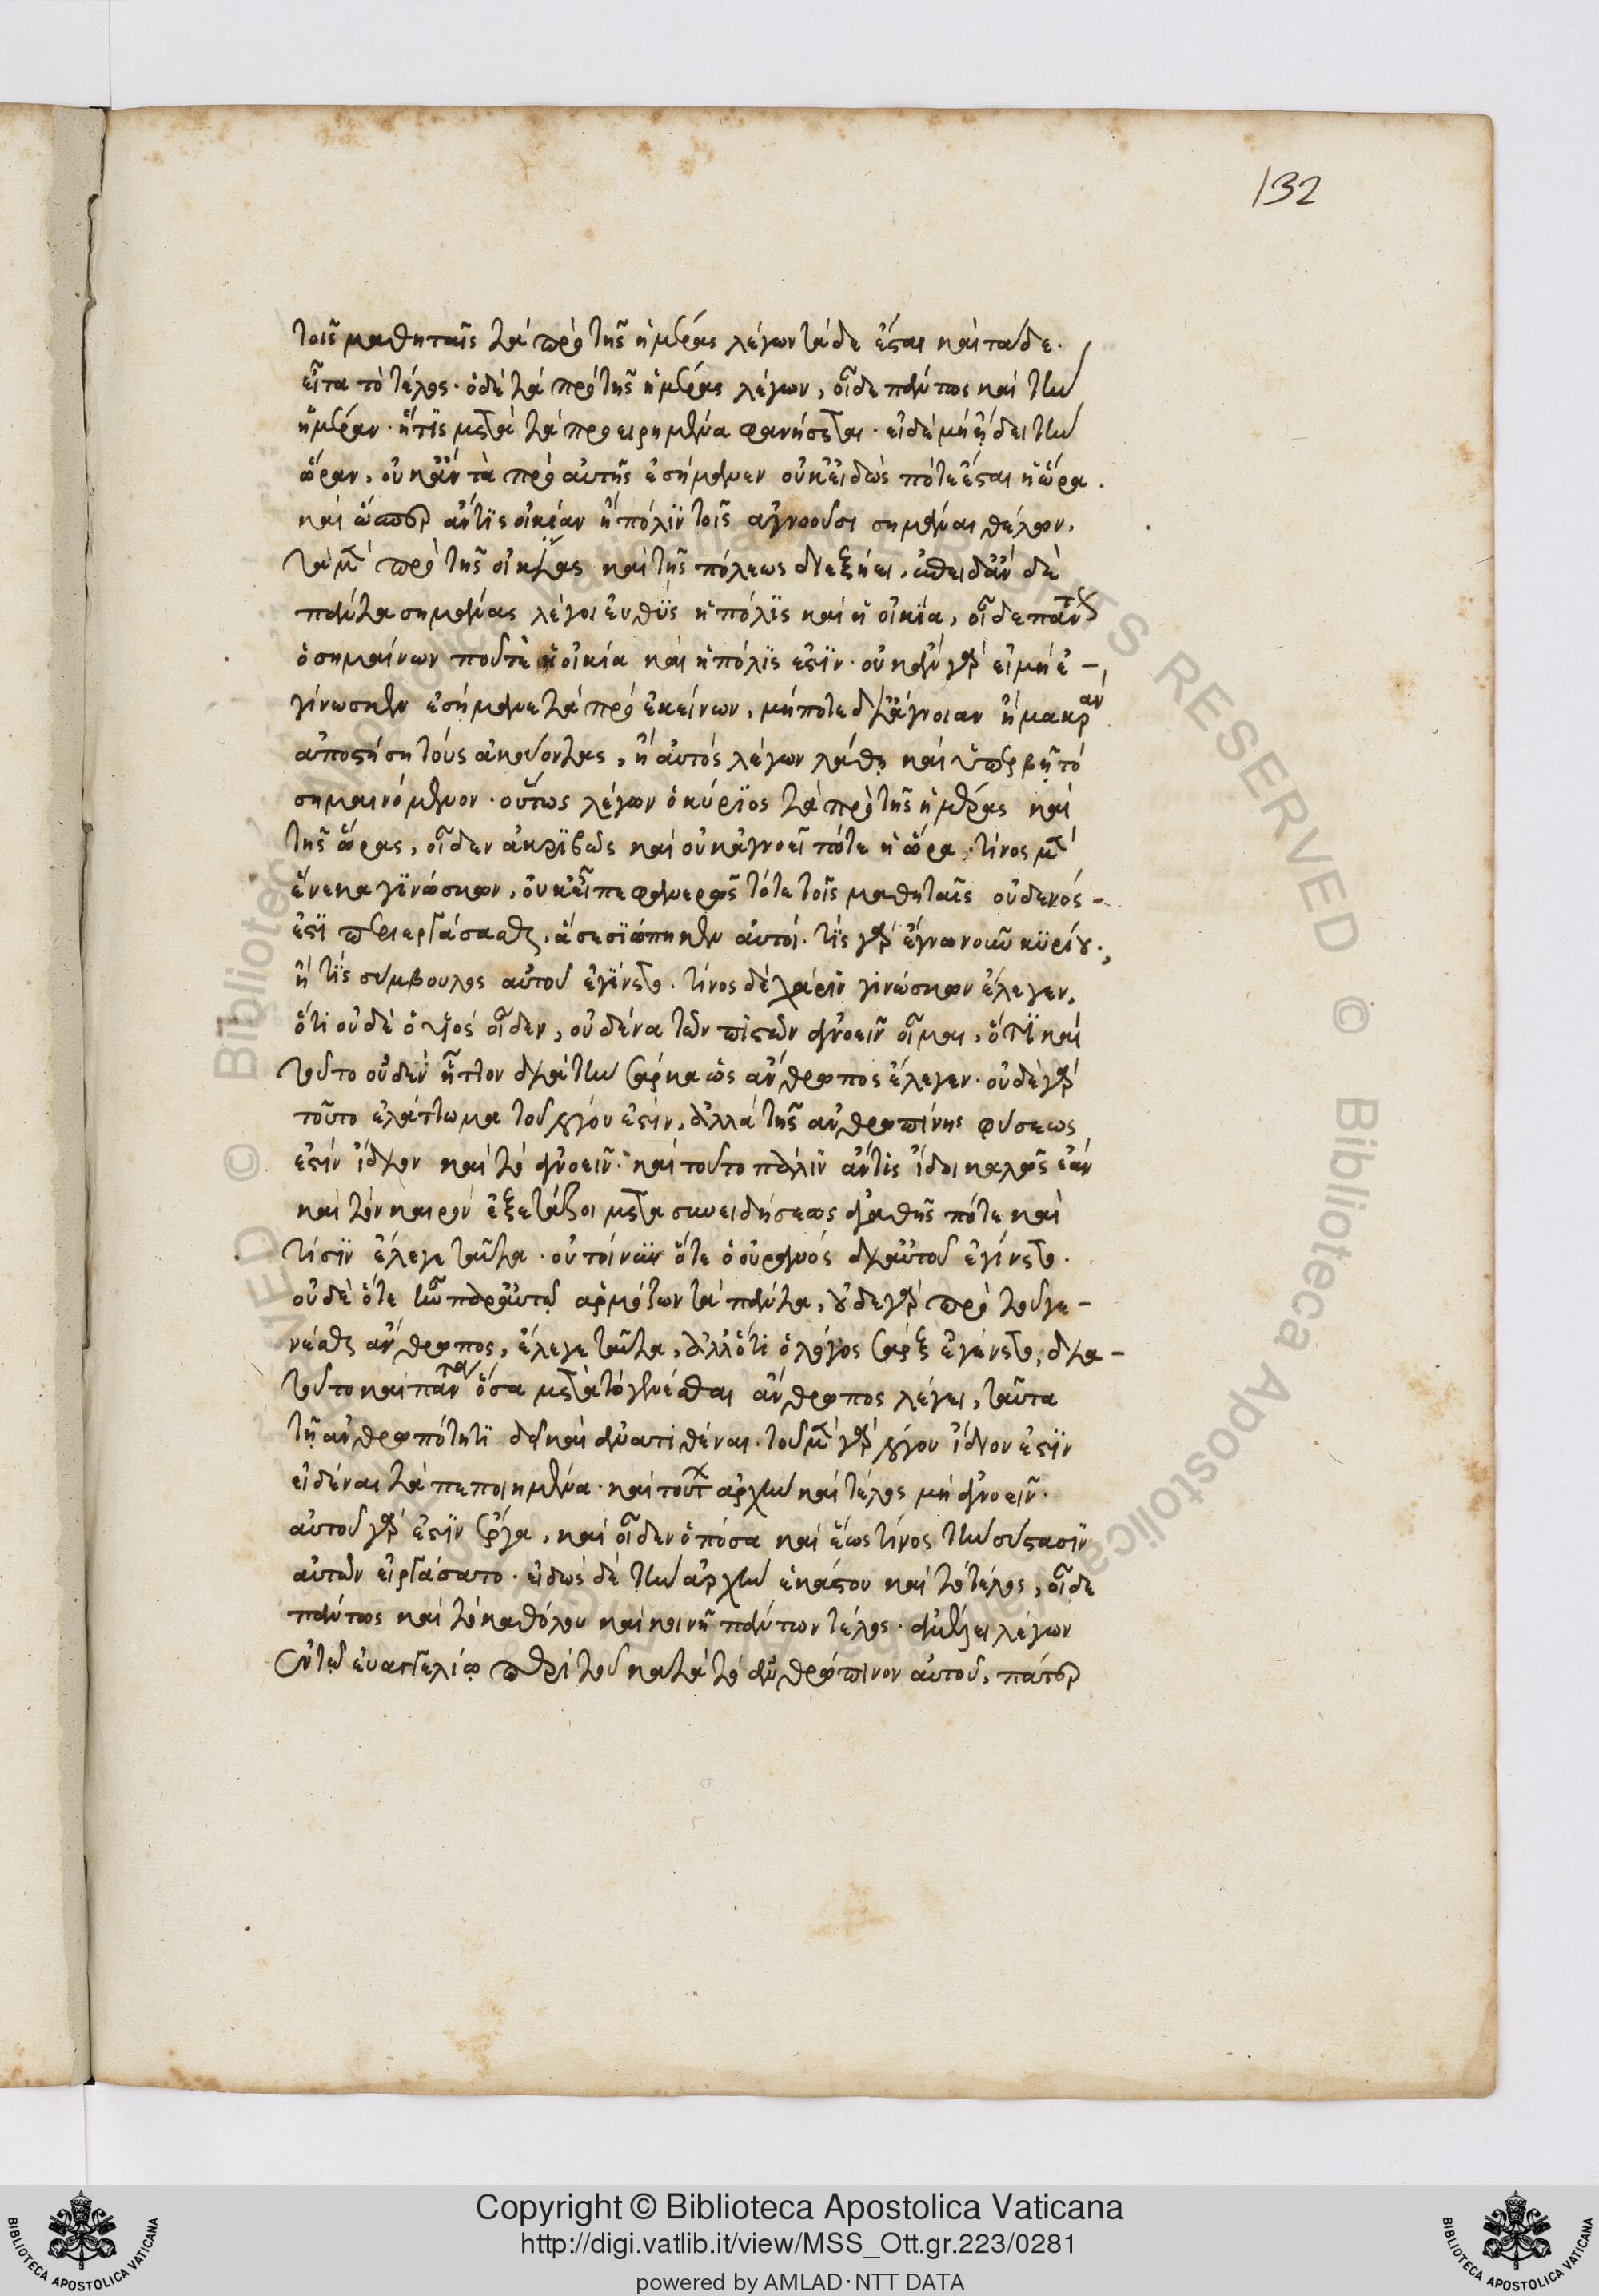 132
τοῖς μαθηταῖς τὰ πρὸ τῆς ἡμέρας λέγων τάδε ἔσται καὶ τάδε·
εἶτα τὸ τέλος· ὁ δὲ τὰ πρὸ τῆς ἡμέρας λέγων, οἶδε πάντως καὶ τὴν
ἡμέραν· ἥτϊς μετὰ τὰ προειρημένα φανήσεται· εἰ δὲ μὴ ᾔδει τὴν
ὥραν, οὐκ ἂν τὰ πρὸ αὐτῆς ἐσήμανεν οὐκ εἰδὼς πότε ἔσται ἡ ὥρα.
καὶ ὥσπερ ἄν τϊς οἰκίαν ἢ πόλϊν τοῖς ἀγνοοῦσι σημᾶναι θέλων,
τὰ μὲν πρὸ τῆς οἰκίας καὶ τῆς πόλεως διεξήει, ἐπειδὰν δὲ
πάντα σημάνας λέγοι εὐθὺς ἡ πόλϊς καὶ ἡ οἰκία, οἶδε πάντως
ὁ σημαίνων ποῦ τε ἡ οἰκία καὶ ἡ πόλϊς ἐστϊν· οὐκ ἂν γὰρ εἰ μὴ ἐ-
γίνωσκεν ἐσήμανε τὰ πρὸ ἐκείνων, μήποτε δι' ἄγνοιαν ἢ μακρὰν
ἀποστήσῃ τοὺς ἀκούοντας, ἢ αὐτὸς λέγων λάθῃ καὶ ὑπερβῇ τὸ
σημαινόμενον· οὕτως λέγων ὁ κύρϊος τὰ πρὸ τῆς ἡμέρας καὶ
τῆς ὥρας, οἶδεν ἀκρϊβῶς καὶ οὐκ ἀγνοεῖ πότε ἡ ὥρα· τίνος μὲν
ἕνεκα γϊνώσκων, οὐκ εἶπε φανερῶς τότε τοῖς μαθηταῖς οὐδενός-
ἐστϊ περιεργάσασθαι, ἃ σεσϊώπηκεν αὐτός. τὶς γὰρ ἔγνω νοῦν κϋρίου·,
ἢ τϊς σύμβουλος αὐτοῦ ἐγένετο· τίνος δὲ χάρϊν γινώσκων ἔλεγεν,
ὅτι οὐδὲ ὁ υἱὸς οἶδεν, οὐδένα τῶν πϊστῶν ἀγνοεῖν οἶμαι, ὅτϊ καὶ
τοῦτο οὐδὲν ἧττον διὰ τὴν σάρκα ὡς ἄνθρωπος ἔλεγεν· οὐδὲ γὰρ
τοῦτο ἐλάττωμα τοῦ λόγου ἐστὶν, ἀλλὰ τῆς ἀνθρωπίνης φύσεως
ἐστὶν ἴδιον καὶ τὸ ἀγνοεῖν· καὶ τοῦτο πάλιν ἄν τις ἴδοι καλῶς ἐὰν
καὶ τὸν καιρὸν ἐξετάζοι μετὰ συνειδήσεως ἀγαθῆς πότε καὶ
τίσϊν ἔλεγε ταῦτα· οὐ τοίνϋν ὅτε ὁ οὐρανὸς δι' αὐτοῦ ἐγίνετο·
οὐδὲ ὅτε ἦν παρ' αὐτῷ ἁρμόζων τὰ πάντα, οὐδὲ γὰρ πρὸ τοῦ γε-
νέσθαι ἄνθρωπος, ἔλεγε ταῦτα, ἀλλ' ὅτι ὁ λόγος σὰρξ ἐγένετο, δια-
τοῦτο καὶ πάντα ὅσα μετὰ τὸ γενέσθαι ἄνθρωπος λέγει, ταῦτα
τῇ ἀνθρωπότητϊ δίκαιον ἀνατιθέναι· τοῦ μὲν γὰρ λόγου ἴδιον ἐστὶν
εἰδέναι τὰ πεποιημένα· καὶ τούτων ἀρχὴν καὶ τέλος μὴ ἀγνοεῖν·
αὐτοῦ γάρ ἐστϊν ἔργα, καὶ οἶδεν ὁπόσα καὶ ἕως τίνος τὴν σύστασϊν
αὐτῶν εἰργάσατο· εἰδὼς δὲ τὴν ἀρχὴν ἑκάστου καὶ τὸ τέλος, οἶδε
πάντως καὶ τὸ καθόλου καὶ κοινῇ πάντων τέλος· ἀμέλει λέγων
ἐν τῷ εὐαγγελίῳ περὶ τοῦ κατὰ τὸ ἀνθρώπινον αὐτοῦ, πάτερ
© Biblioteca Apostolica Vaticana ALL RIGHTS RESERVED © Biblioteca Apostolica Vaticana ALL RIGHTS RESERVED
Copyright © Biblioteca Apostolica Vaticana
http://digi.vatlib.it/view/MSS_Ott.gr.223/0281
powered by AMLAD·NTT DATA
BIBLIOTECA APOSTOLICA VATICANA
BIBLIOTECA APOSTOLICA VATICANA